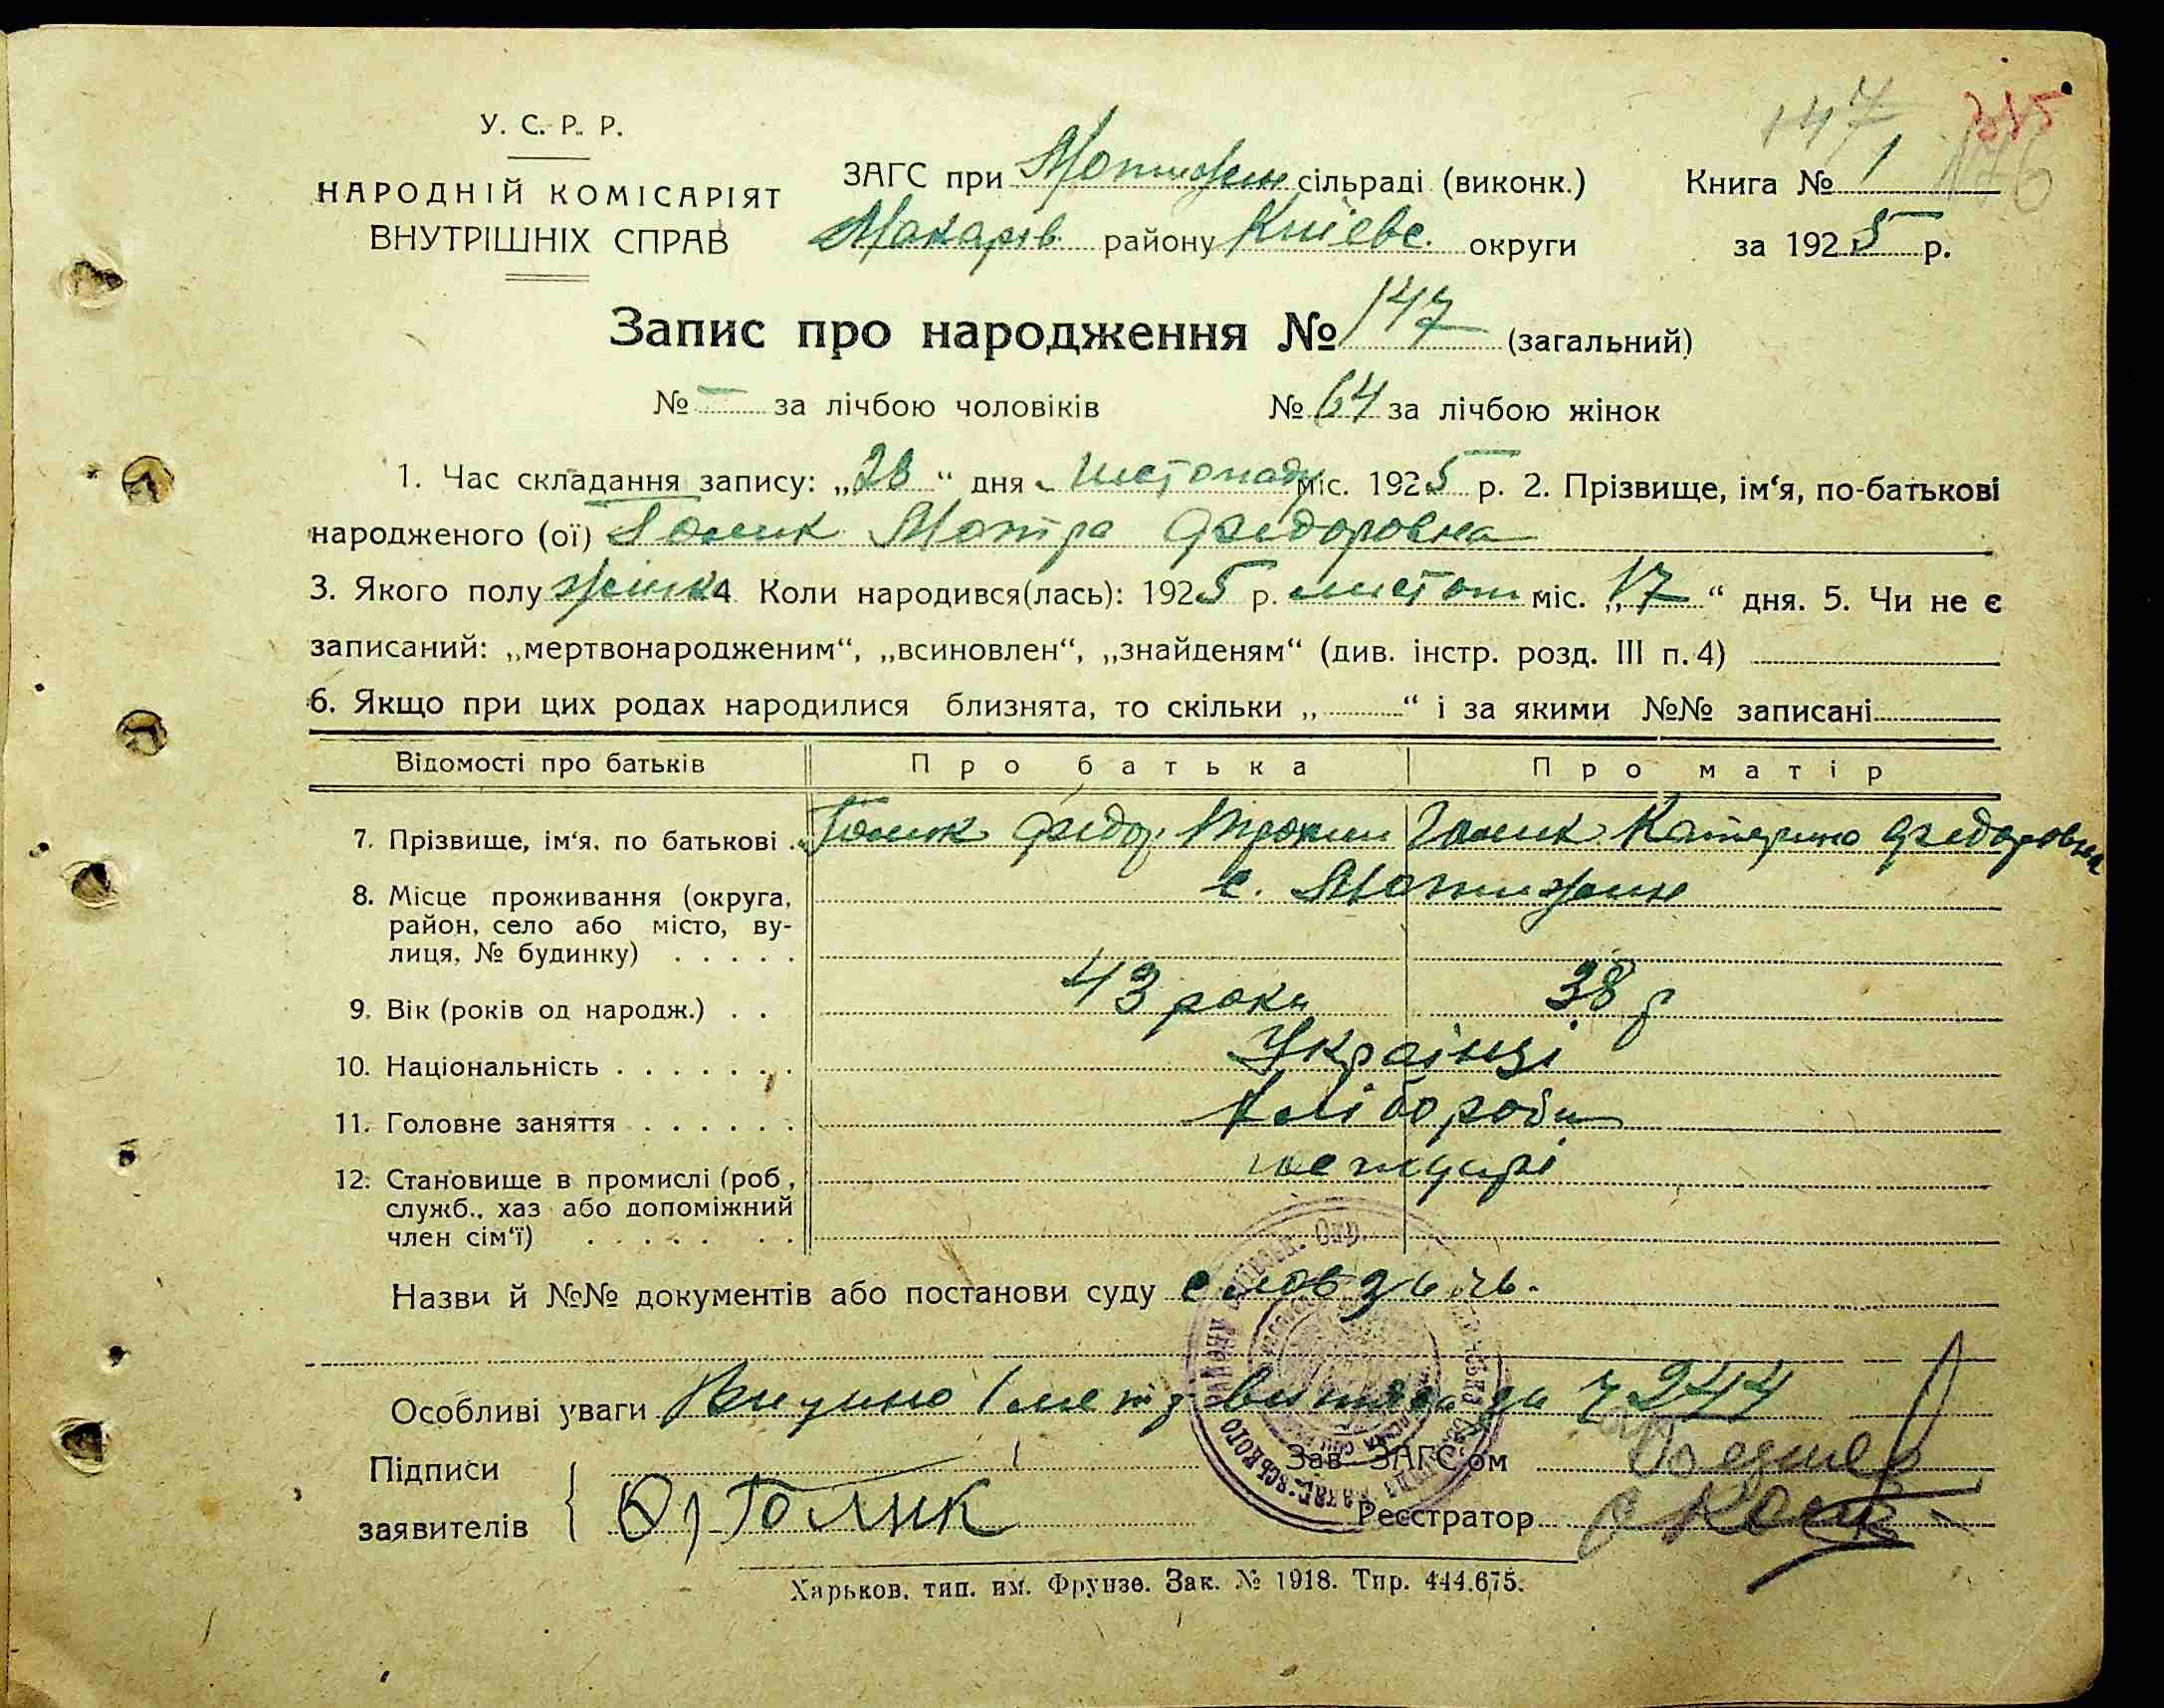 147 215
146
У. С. Р. Р.
НАРОДНІЙ КОМІСАРІЯТ
ВНУТРІШНІХ СПРАВ
ЗАГС при Мотижин сільраді (виконк.)
Макарів района Київс. округи
Книга № 1
за 1925 р.
Запис про народження № 147 (загальний)
№ — за лічбою чоловіків № 64 за лічбою жінок
1. Час складання запису: „28“ дня листопад міс. 1925 р. 2. Прізвище, ім‘я, по-батькові
народженого (ої) Голик Мотра Федоровна
3. Якого полу жінка 4 Коли народився(лась): 1925 р. листоп міс. „17“ дня. 5. Чи не є
записаний: „мертвонародженим“, „всиновлен“, „знайденям“ (див. інстр. розд. III п. 4)
6. Якщо при цих родах народилися близнята, то скільки „ “ і за якими №№ записані
Відомості про батьків Про батька Про матір
7. Прізвище, ім‘я, по батькові Голик Федор Трохим Голик Катерина Федоровна
8. Місце проживання (округа, с. Мотижин
район, село або місто, ву-
лиця, № будинку)
9. Вік (років од народж.) 43 роки 38 р
10. Національність Українці
11. Головне заняття Хлібороби
12. Становище в промислі (роб,
служб., хаз або допоміжний
член сім‘ї)
Назви й №№ документів або постанови суду
Особливі уваги 244
Підписи
заявителів Ф Голик
Зав. ЗАГС‘ом
Реєстратор
Харьков, тип. им. Фрунзе. Зак. № 1918. Тир. 444.675.